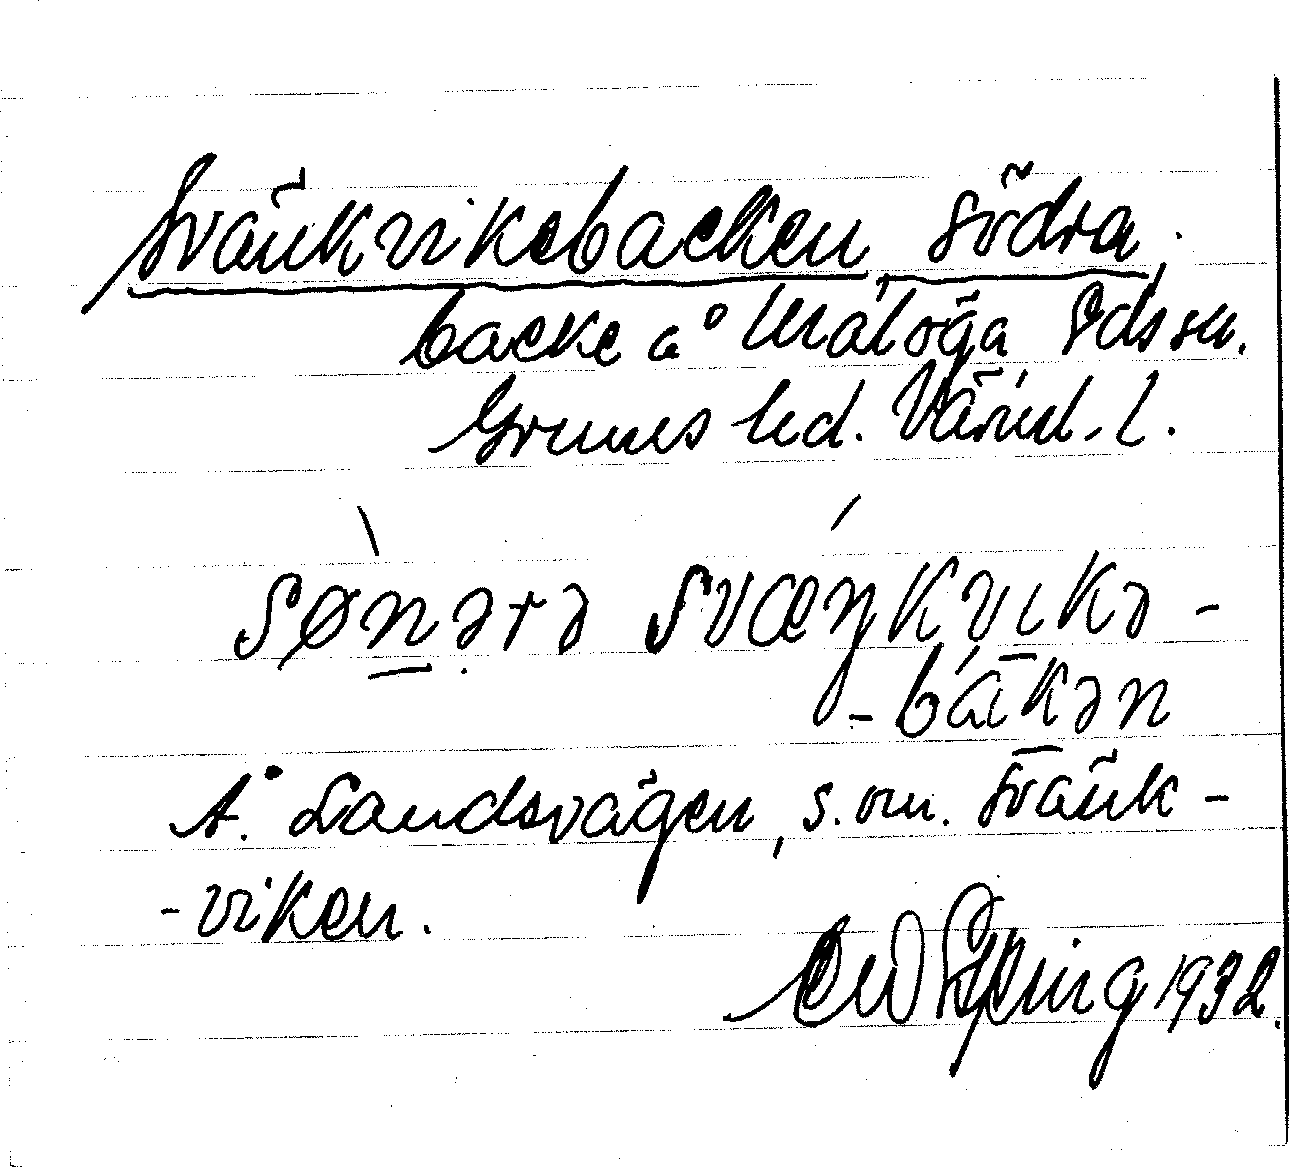 Svänkvikebacken, södra.
backe å Måloga Eds sn.
Grums hd. Värml. l.
sønərə svæŋkvikə-
-bakən
Å. Landsvägen, s. om Svänk-
-viken.
1932.